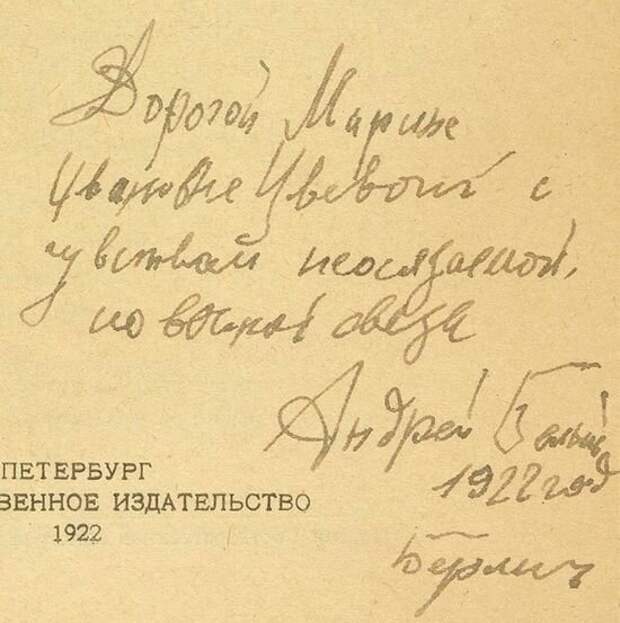 Дорогой Марине
Ивановне Цвевой с
чувствам неосязаемой,
но связи
Андрей Белый
1922 год
Берлин
ПЕТЕРБУРГ
ВЕННОЕ ИЗДАТЕЛЬСТВО
1922